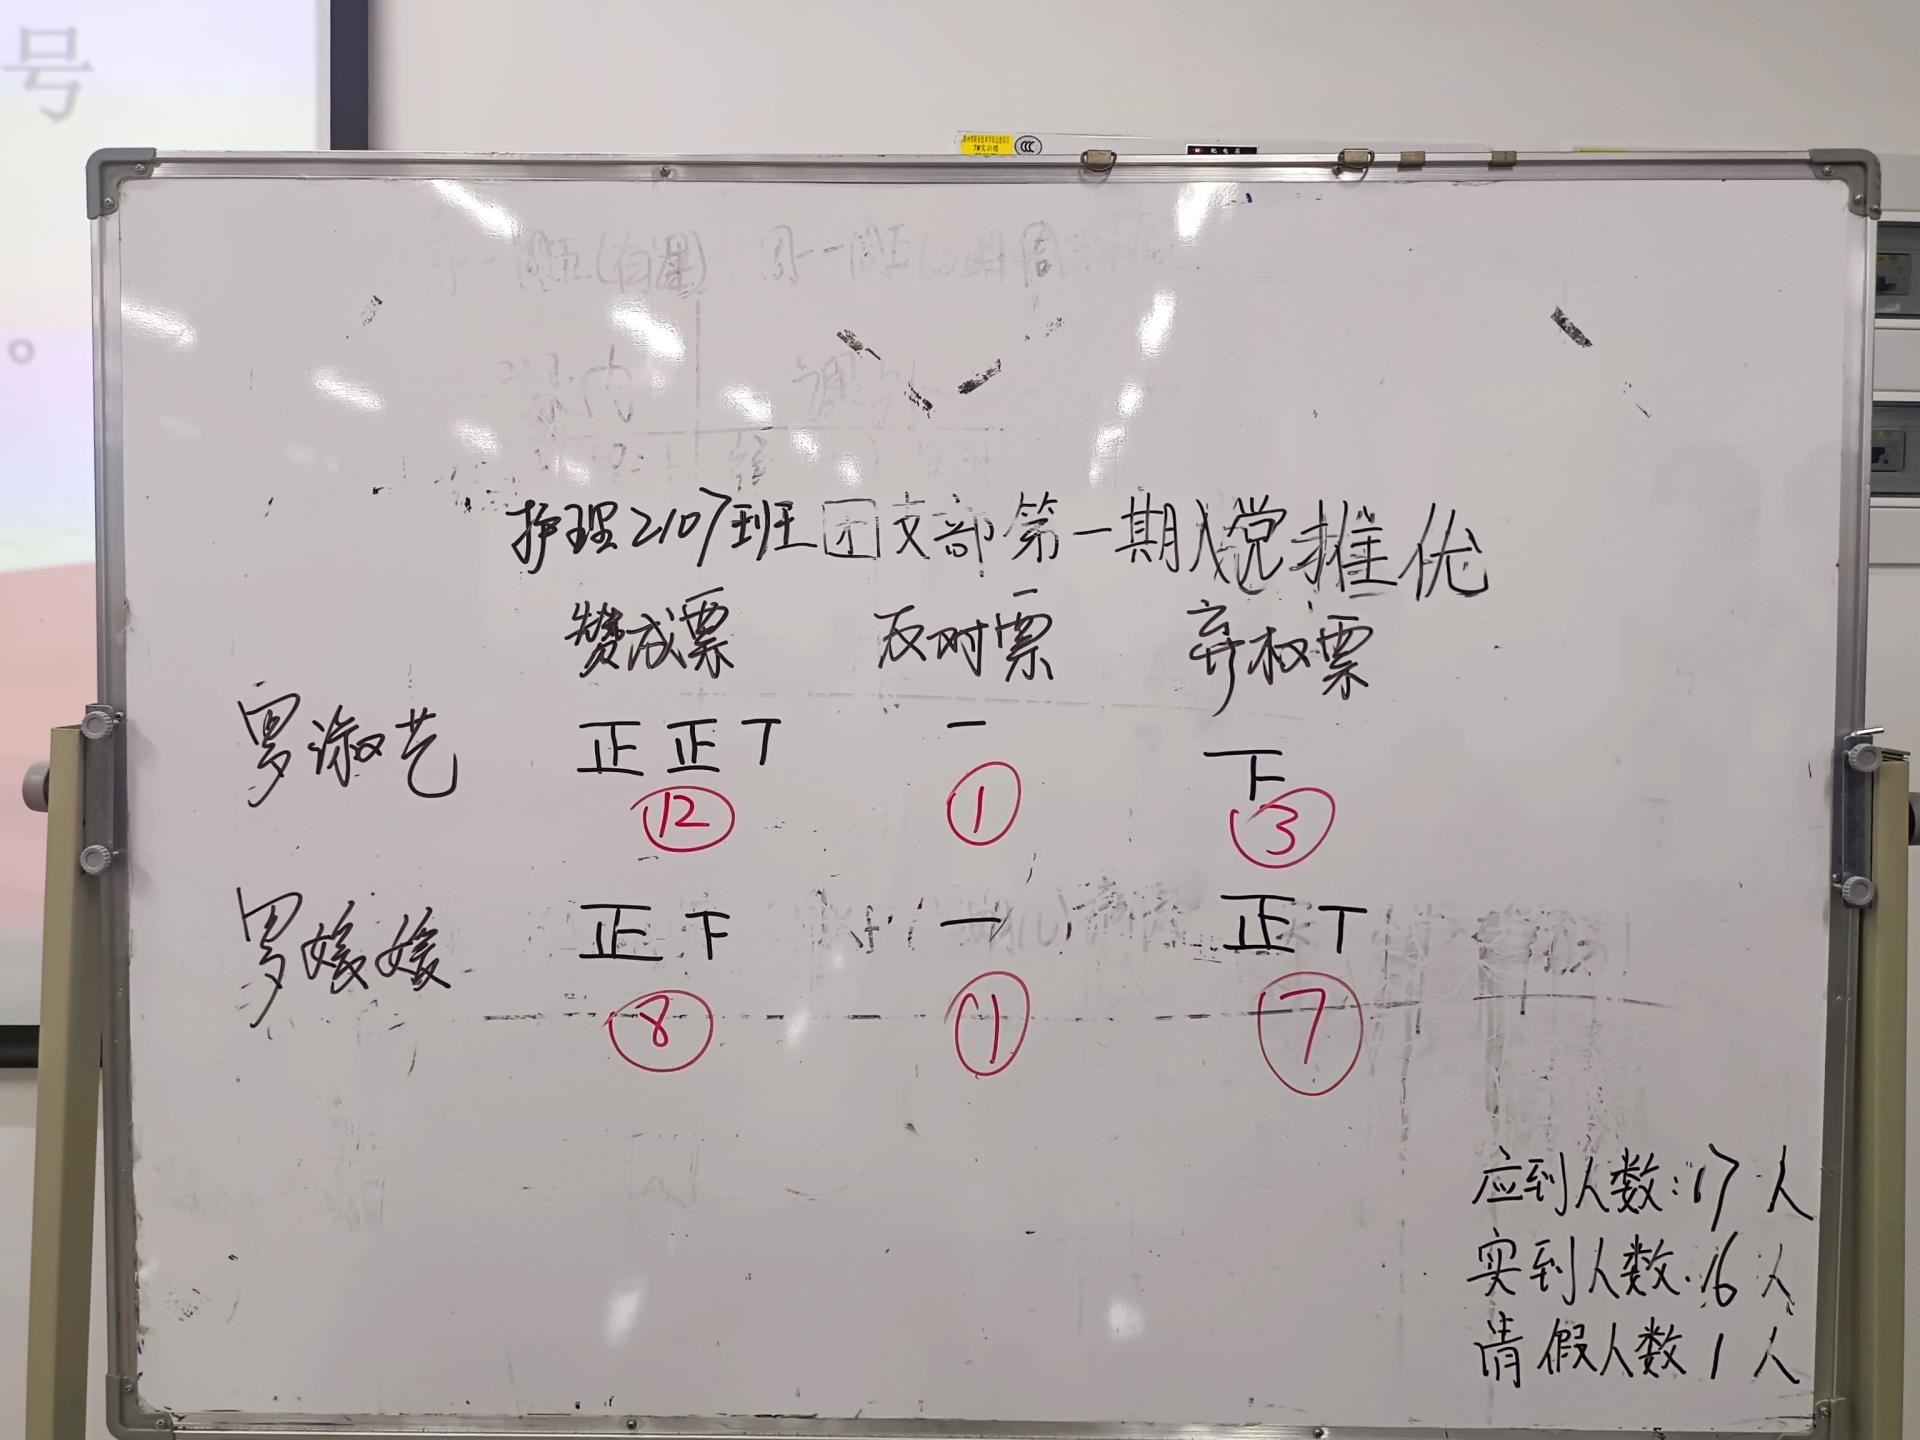 号
。
7#实训楼
配电箱
护理2107班团支部第一期入党推优
赞成票 反对票 弃权票
罗淑艺 正正丅 一 下
12 1 3
罗媛媛 正下 一 正丅
8 1 7
应到人数:17人
实到人数.16人
请假人数1人